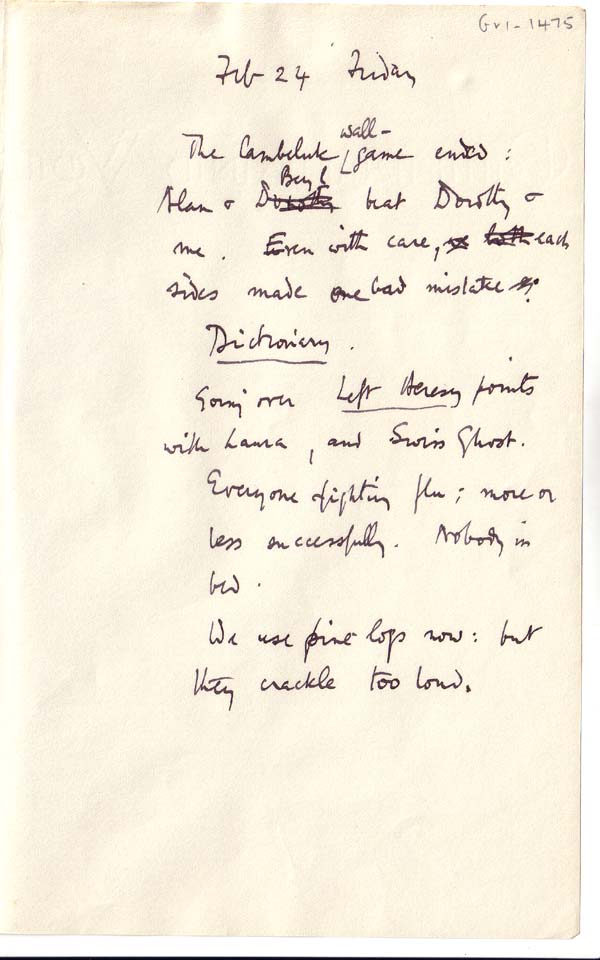 Gr1-1475
Feb 24 Friday
The Cambeluk wall-game ended:
Alan & Beryl beat Dorothy &
me. Even with care, each
sides made one bad mistake.
Dictionary.
Going over Left Heresy points
with Laura, and Swiss Ghost.
Everyone fighting flu; more or
less successfully. Nobody in
bed.
We use pine logs now: but
they crackle too loud.